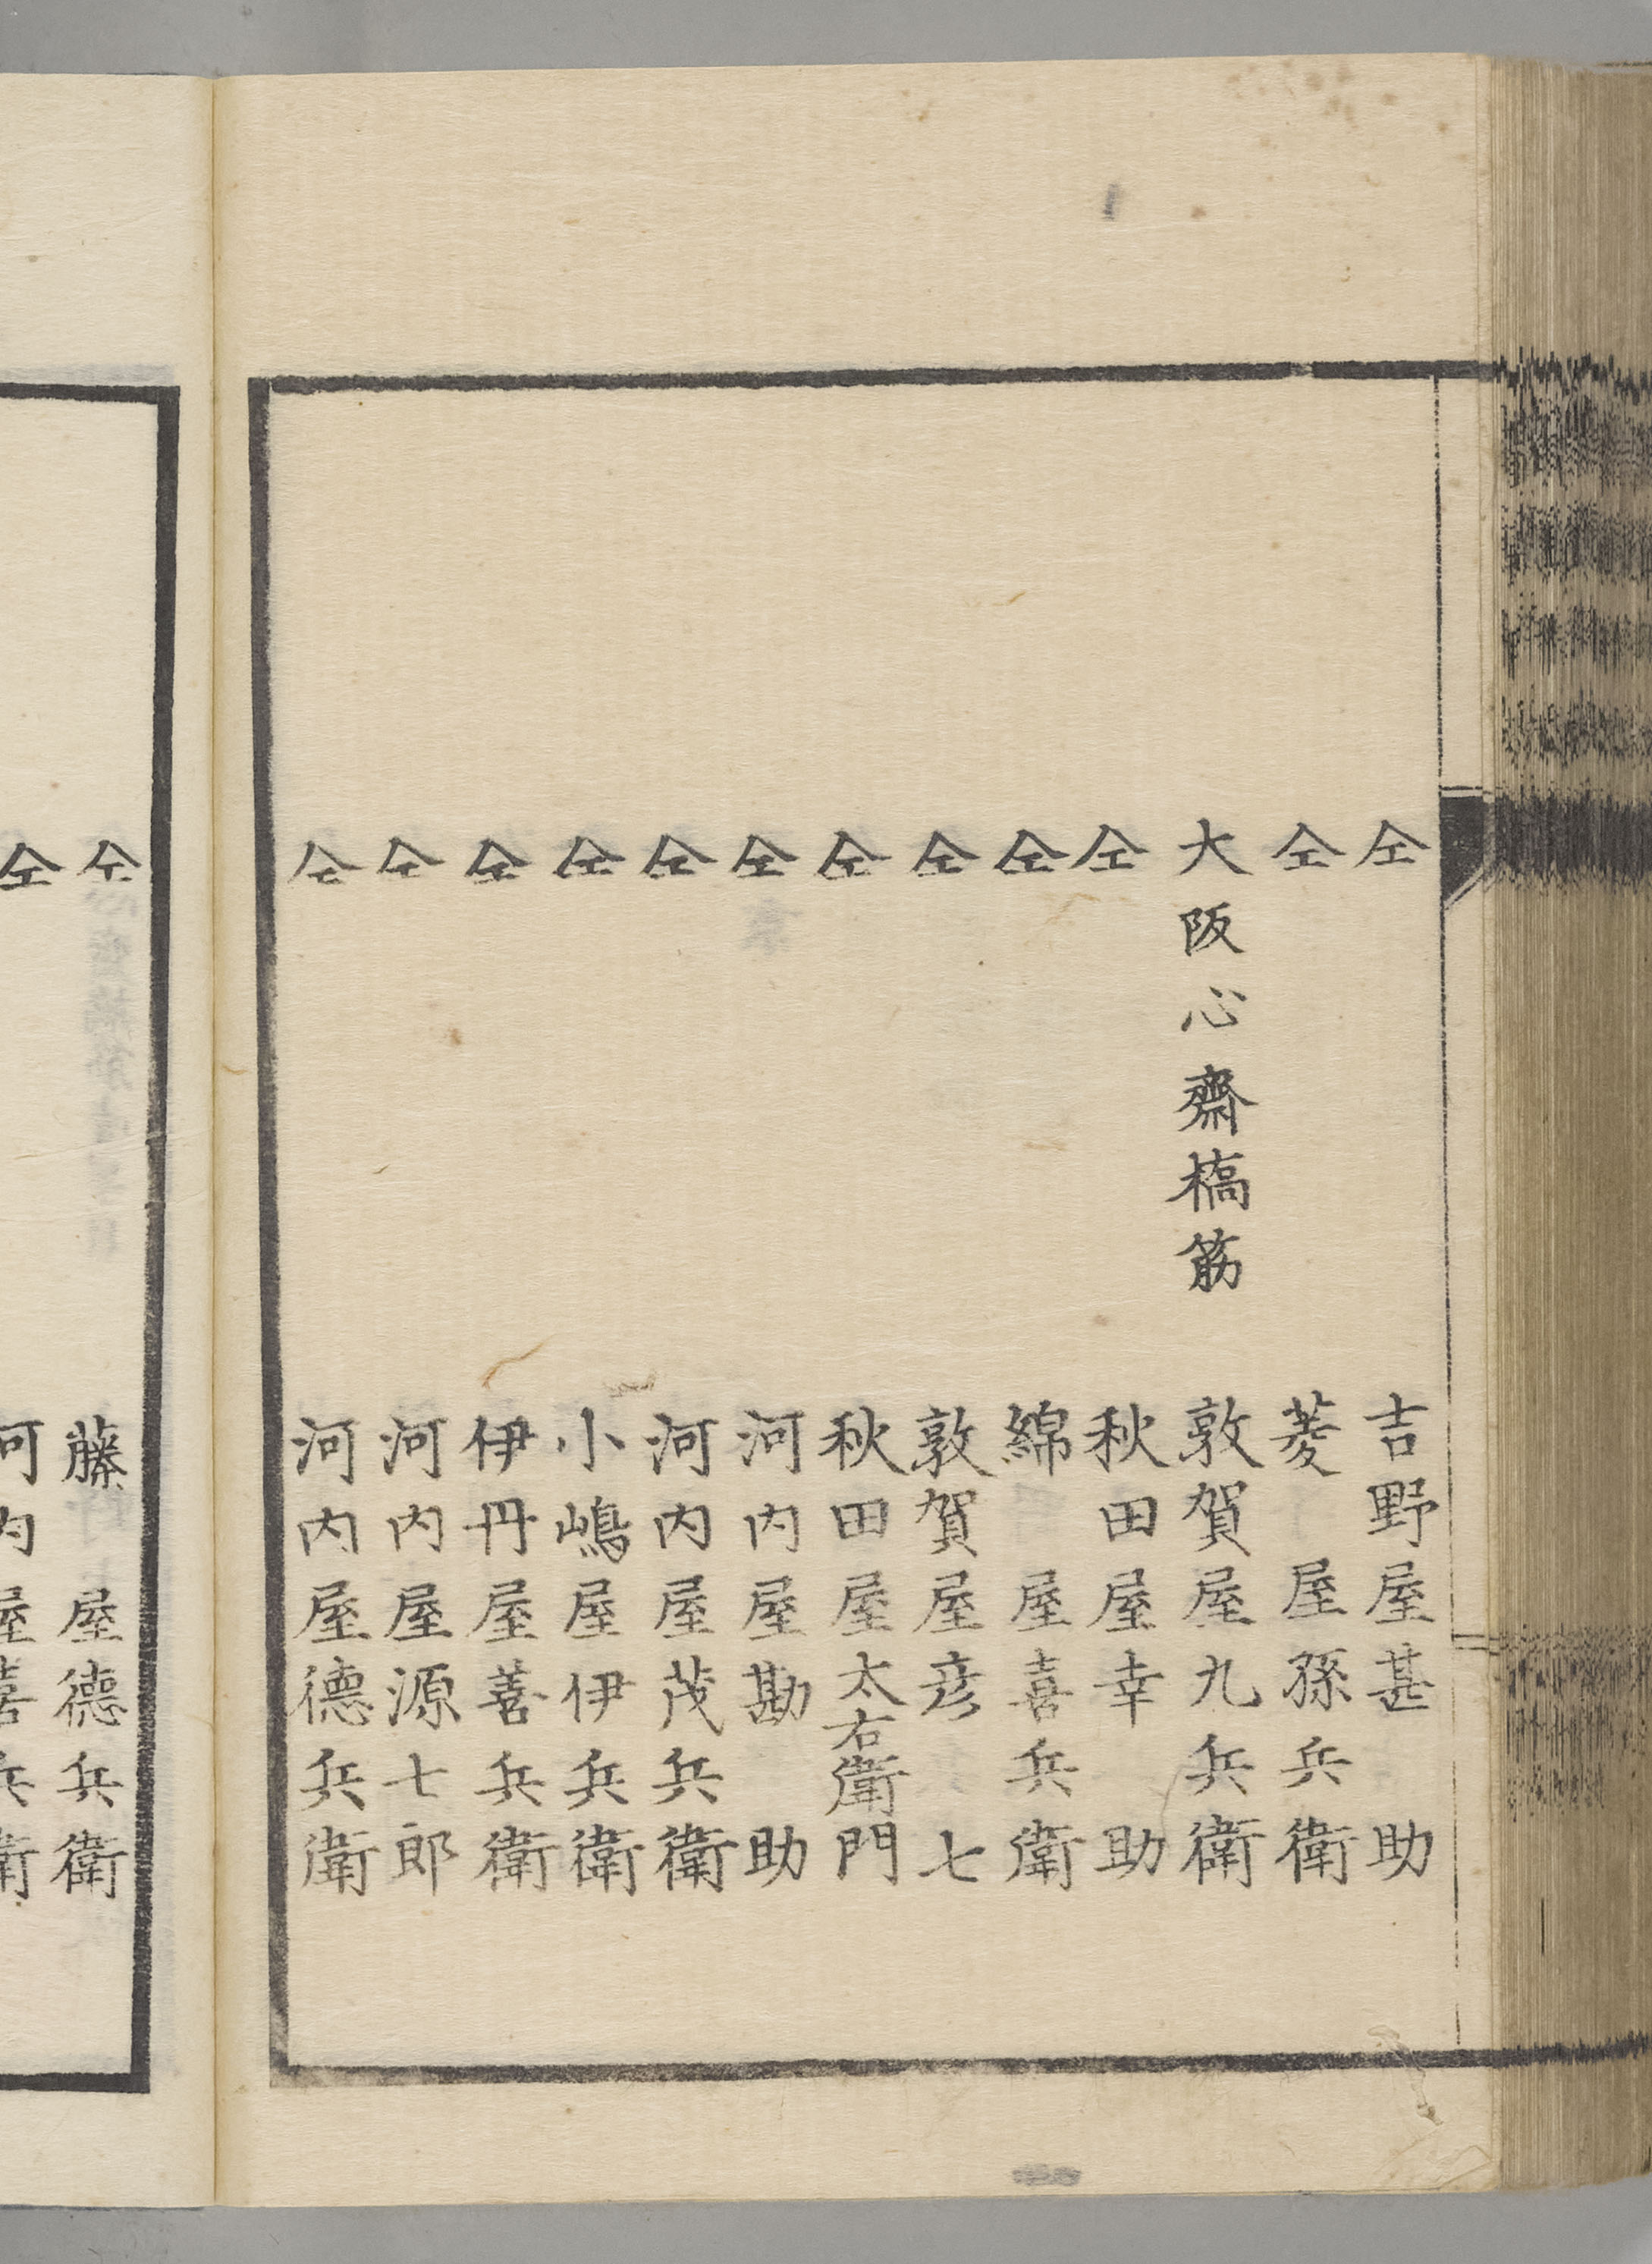 仝 吉野屋甚助
仝 菱屋孫兵衛
大阪心齋橋筋 敦賀屋九兵衛
仝 秋田屋幸助
仝 綿屋喜兵衛
仝 敦賀屋彦七
仝 秋田屋太右衛門
仝 河内屋勘助
仝 河内屋茂兵衛
仝 小嶋屋伊兵衛
仝 伊丹屋善兵衛
仝 河内屋源七郎
仝 河内屋德兵衛
仝 藤屋德兵衛
仝 河内屋喜兵衛